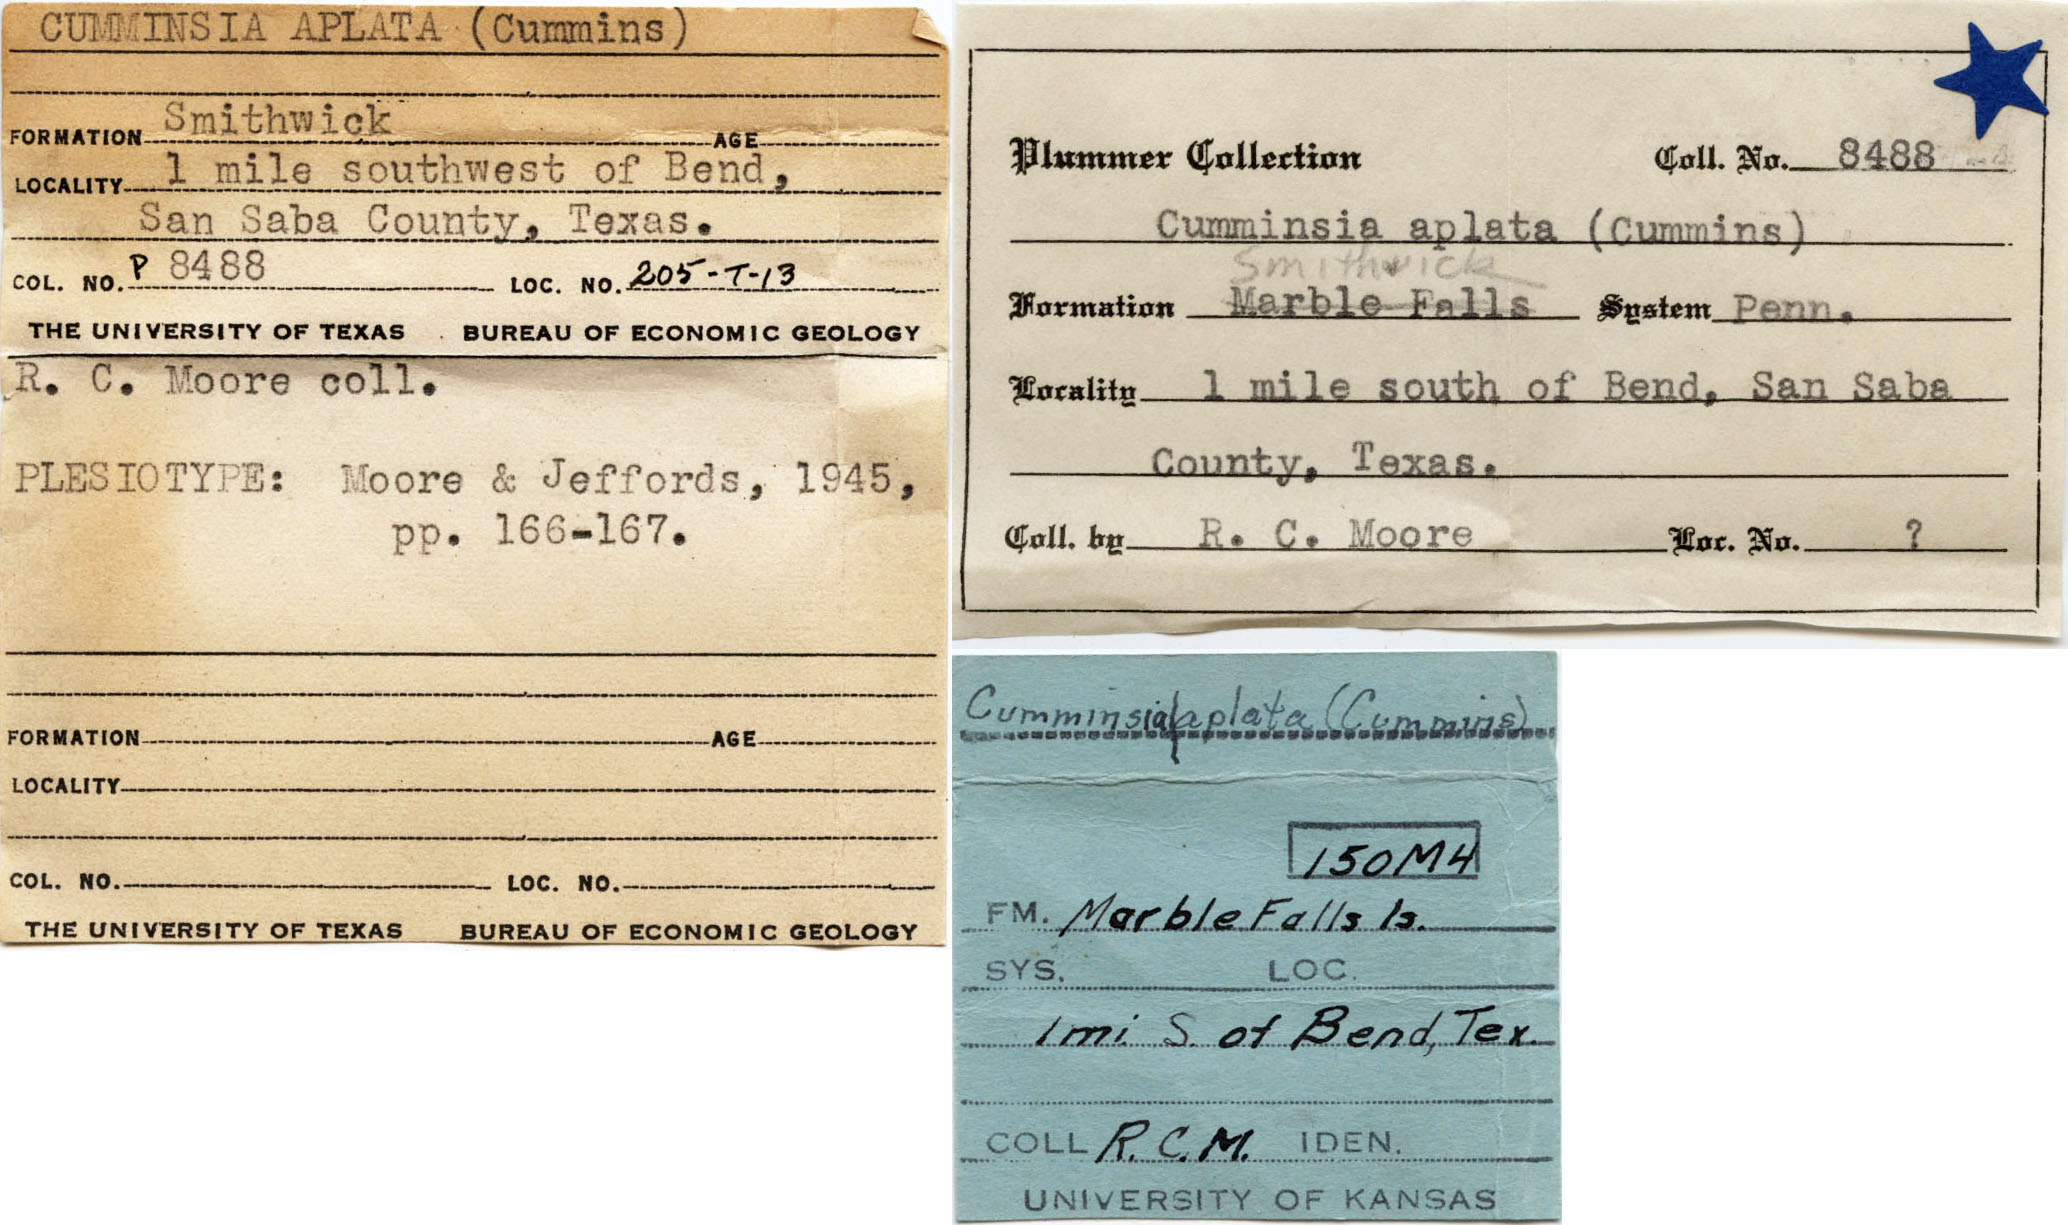 CUMMINSIA APLATA (Cummins)
FORMATION Smithwick AGE
LOCALITY 1 mile southwest of Bend,
San Saba County, Texas.
COL. NO. P 8488 LOC. NO. 205-T-13
THE UNIVERSITY OF TEXAS BUREAU OF ECONOMIC GEOLOGY
R. C. Moore coll.
PLESIOTYPE: Moore & Jeffords, 1945,
pp. 166-167.
FORMATION AGE
LOCALITY
COL. NO. LOC. NO.
THE UNIVERSITY OF TEXAS BUREAU OF ECONOMIC GEOLOGY
Plummer Collection Coll. No. 8488
Cumminsia aplata (Cummins)
Smithwick
Formation Marble Falls System Penn.
Locality 1 mile south of Bend, San Saba
County, Texas.
Coll. by R. C. Moore Loc. No. ?
Cumminsia aplata (Cummins)
150M4
FM. Marble Falls ls.
SYS. LOC.
1 mi. S. of Bend, Tex.
COLL R.C.M. IDEN.
UNIVERSITY OF KANSAS